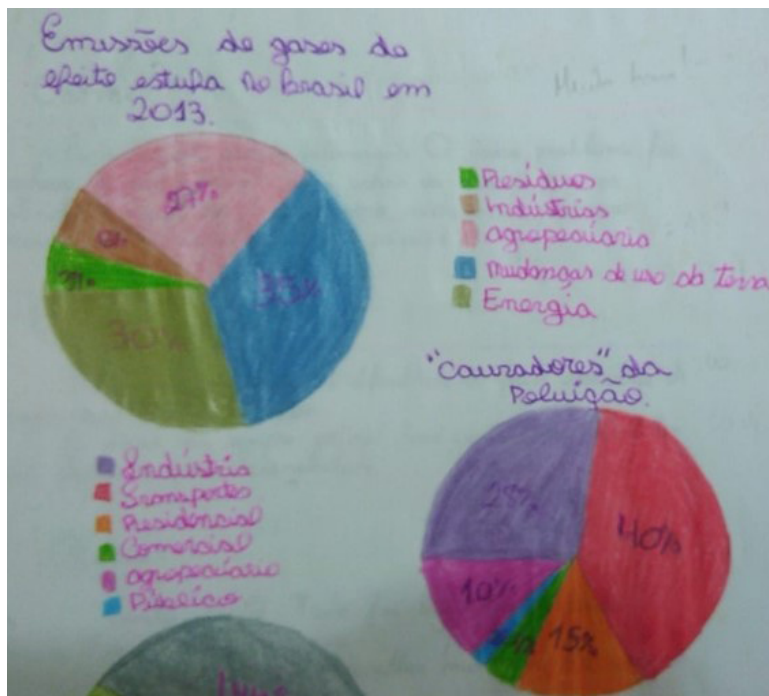 Emissões de gases do
efeito estufa no Brasil em
2013.
27%
35%
30%
Resíduos
Indústrias
agropecuária
mudanças de uso da terra
Energia
"Causadores" da
Poluição.
Indústria
Transportes
Residêncial
Comercial
agropecuário
Público
40%
10%
15%